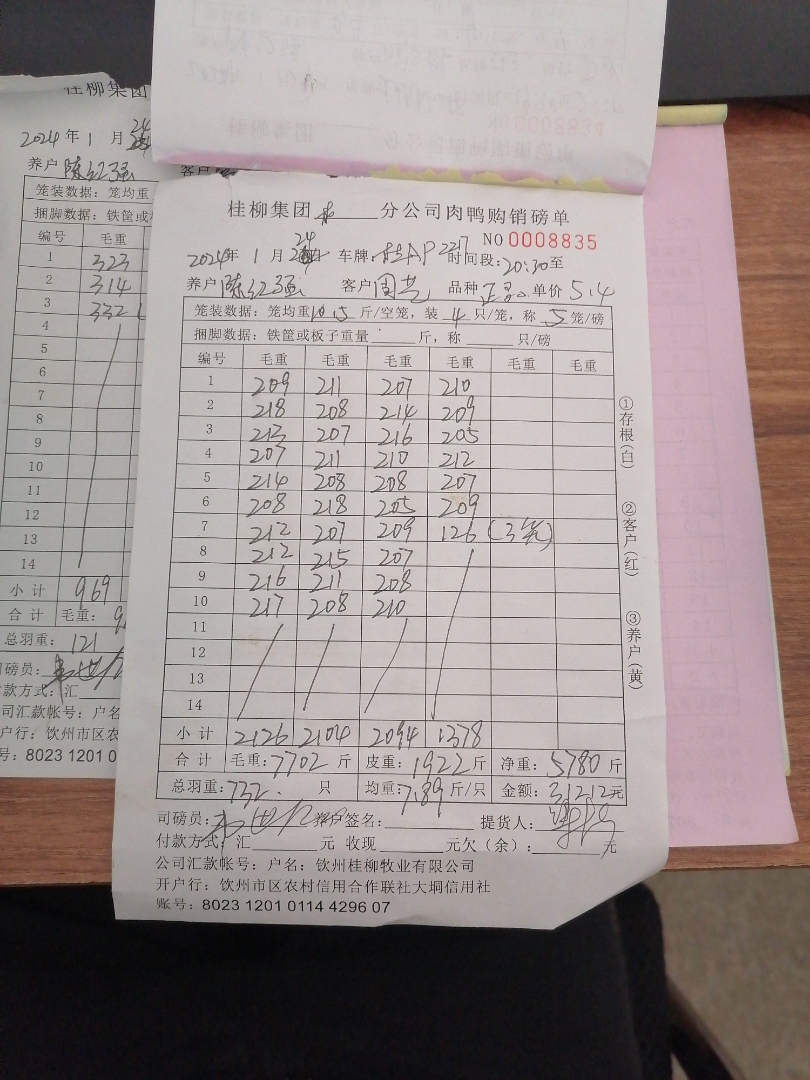 桂柳集团
2024年1月24
养户 陈红强
客户
笼装数据：笼均重
捆脚数据：铁筐或板
编号 毛重
1 323
2 314
3 332
4
5
6
7
8
9
10
11
12
13
14
小计 969
合计 毛重：9
总羽重：121
磅员：
款方式：汇
司汇款帐号：户名
户行：钦州市区农
号：8023 1201 0
0008834
桂柳集团 分公司肉鸭购销磅单
NO 0008835
2024年1月24 车牌：桂AP2217 时间段：20:30至
养户 陈红强 客户 周艺 品种 单价 5.4
笼装数据：笼均重10.5斤/空笼，装4只/笼，称5笼/磅
捆脚数据：铁筐或板子重量 斤，称 只/磅
编号 毛重 毛重 毛重 毛重 毛重 毛重
1 209 211 207 210
2 218 208 214 209
3 213 207 216 205
4 207 211 210 212
5 214 208 208 207
6 208 218 205 209
7 212 207 209 126 (3笼)
8 212 215 207
9 216 211 208
10 217 208 210
11
12
13
14
小计 2126 2104 2094 1378
合计 毛重：7702斤 皮重：1922斤 净重：5780斤
总羽重：732. 只 均重：7.89斤/只 金额：31212元
司磅员： 养户签名： 提货人：
付款方式：汇 元 收现 元欠（余）： 元
公司汇款帐号：户名：钦州桂柳牧业有限公司
开户行：钦州市区农村信用合作联社大垌信用社
账号：8023 1201 0114 4296 07
①存根(白)
②客户(红)
③养户(黄)